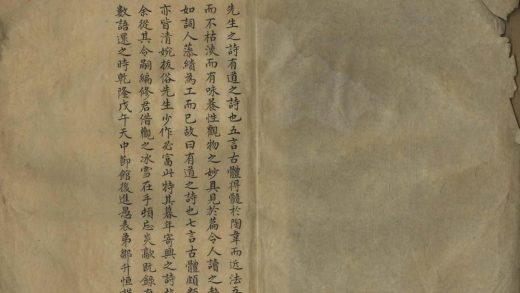 先生之詩有道之詩也五言古體得髓於陶韋而近法
而不枯淡而有味養性觀物之妙具見於篇令人讀之
如詞人藻繢為工而已故曰有道之詩也七言古體頗
亦皆清婉拔俗先生少作必富此特其暮年寄興之詩
余從其令嗣編修君借觀之冰雪在手頓忘炎歊既錄
數語還之時乾隆戊午天中節館後進愚表弟鄒升恒